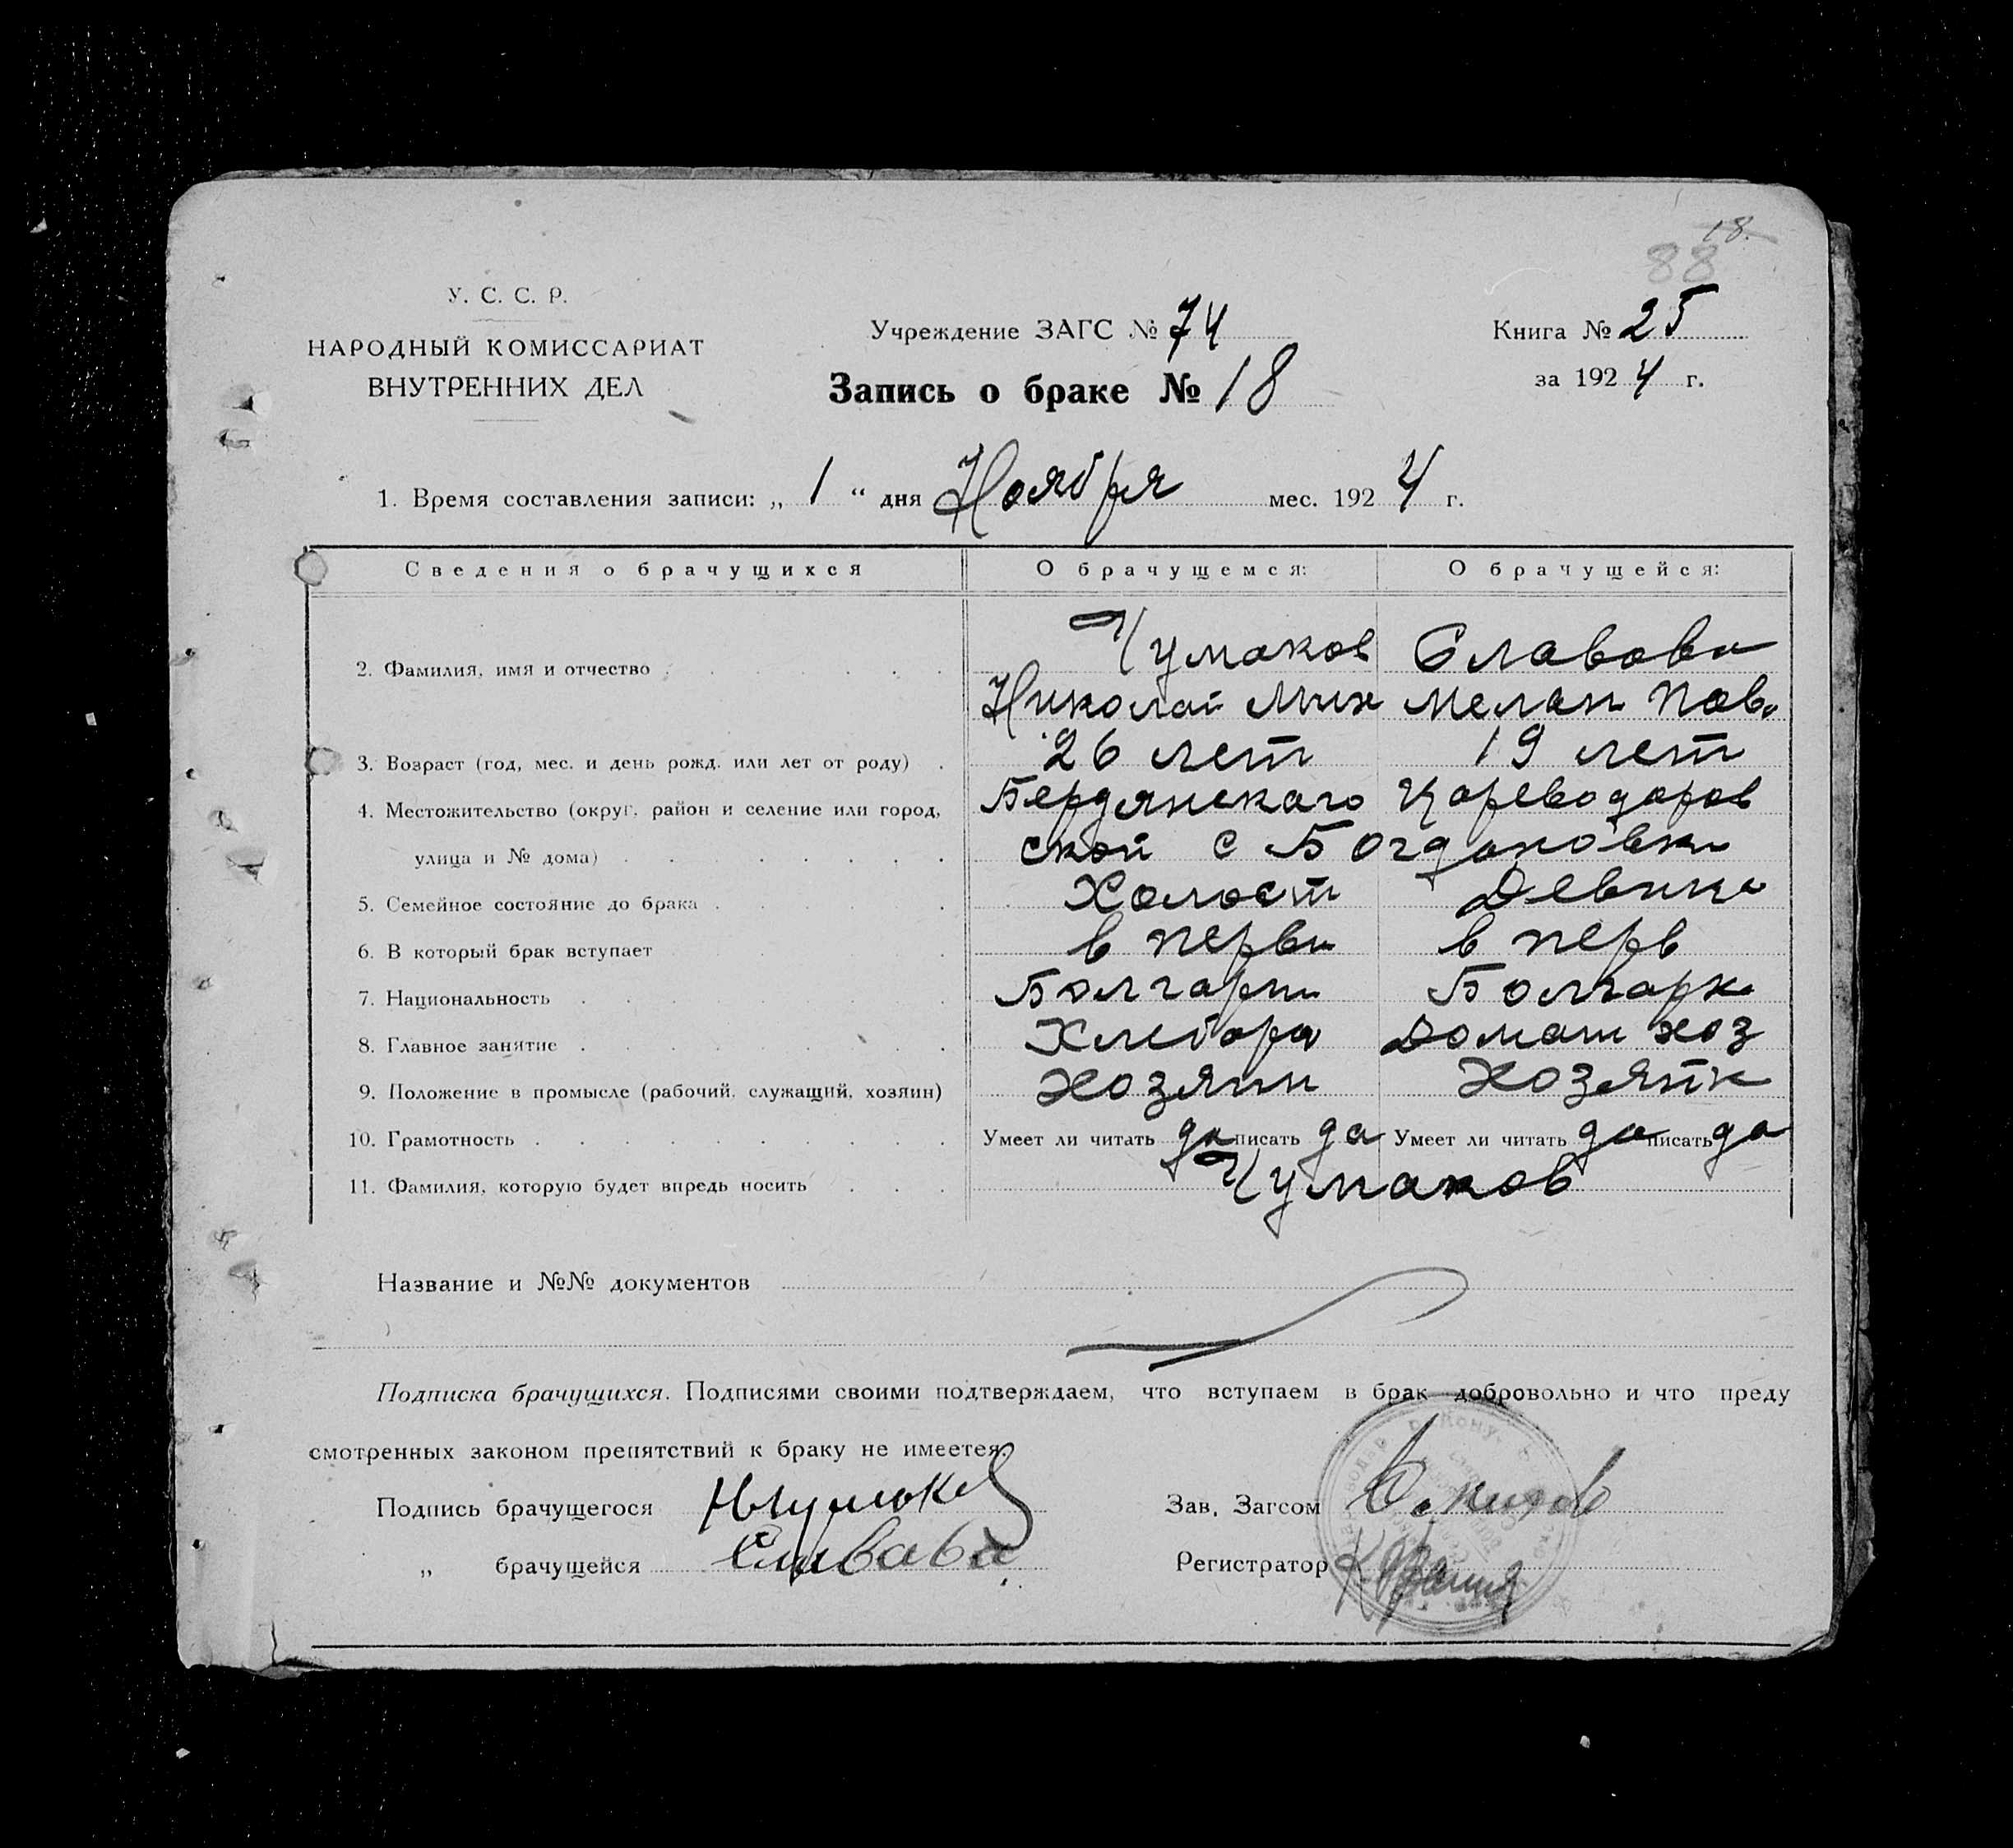 18.
88
У. С. С. Р.
НАРОДНЫЙ КОМИССАРИАТ
ВНУТРЕННИХ ДЕЛ
Учреждение ЗАГС № 74
Запись о браке № 18
Книга № 25
за 1924 г.
1. Время составления записи: „ 1 “ дня Ноября мес. 1924 г.
Сведения о брачущихся О брачущемся: О брачущейся:
Чумаков Славова
2. Фамилия, имя и отчество
Николай Мих Мелан Пав.
3. Возраст (год, мес. и день рожд. или лет от роду) 26 лет 19 лет
4. Местожительство (округ, район и селение или город, Бердянскаго Цареводаров
улица и № дома) ской с Богдановки
5. Семейное состояние до брака Холост Девица
6. В который брак вступает в перви в перв
7. Национальность Болгарин Болгарк
8. Главное занятие Хлебороб Домаш хоз
9. Положение в промысле (рабочий, служащий, хозяин) Хозяин Хозяйк
10. Грамотность Умеет ли читать да писать да Умеет ли читать да писать да
11. Фамилия, которую будет впредь носить Чумаков
Название и №№ документов
Подписка брачущихся. Подписями своими подтверждаем, что вступаем в брак добровольно и что преду
смотренных законом препятствий к браку не имеется.
Подпись брачущегося НЧумаков Зав. Загсом
„ брачущейся Славова Регистратор